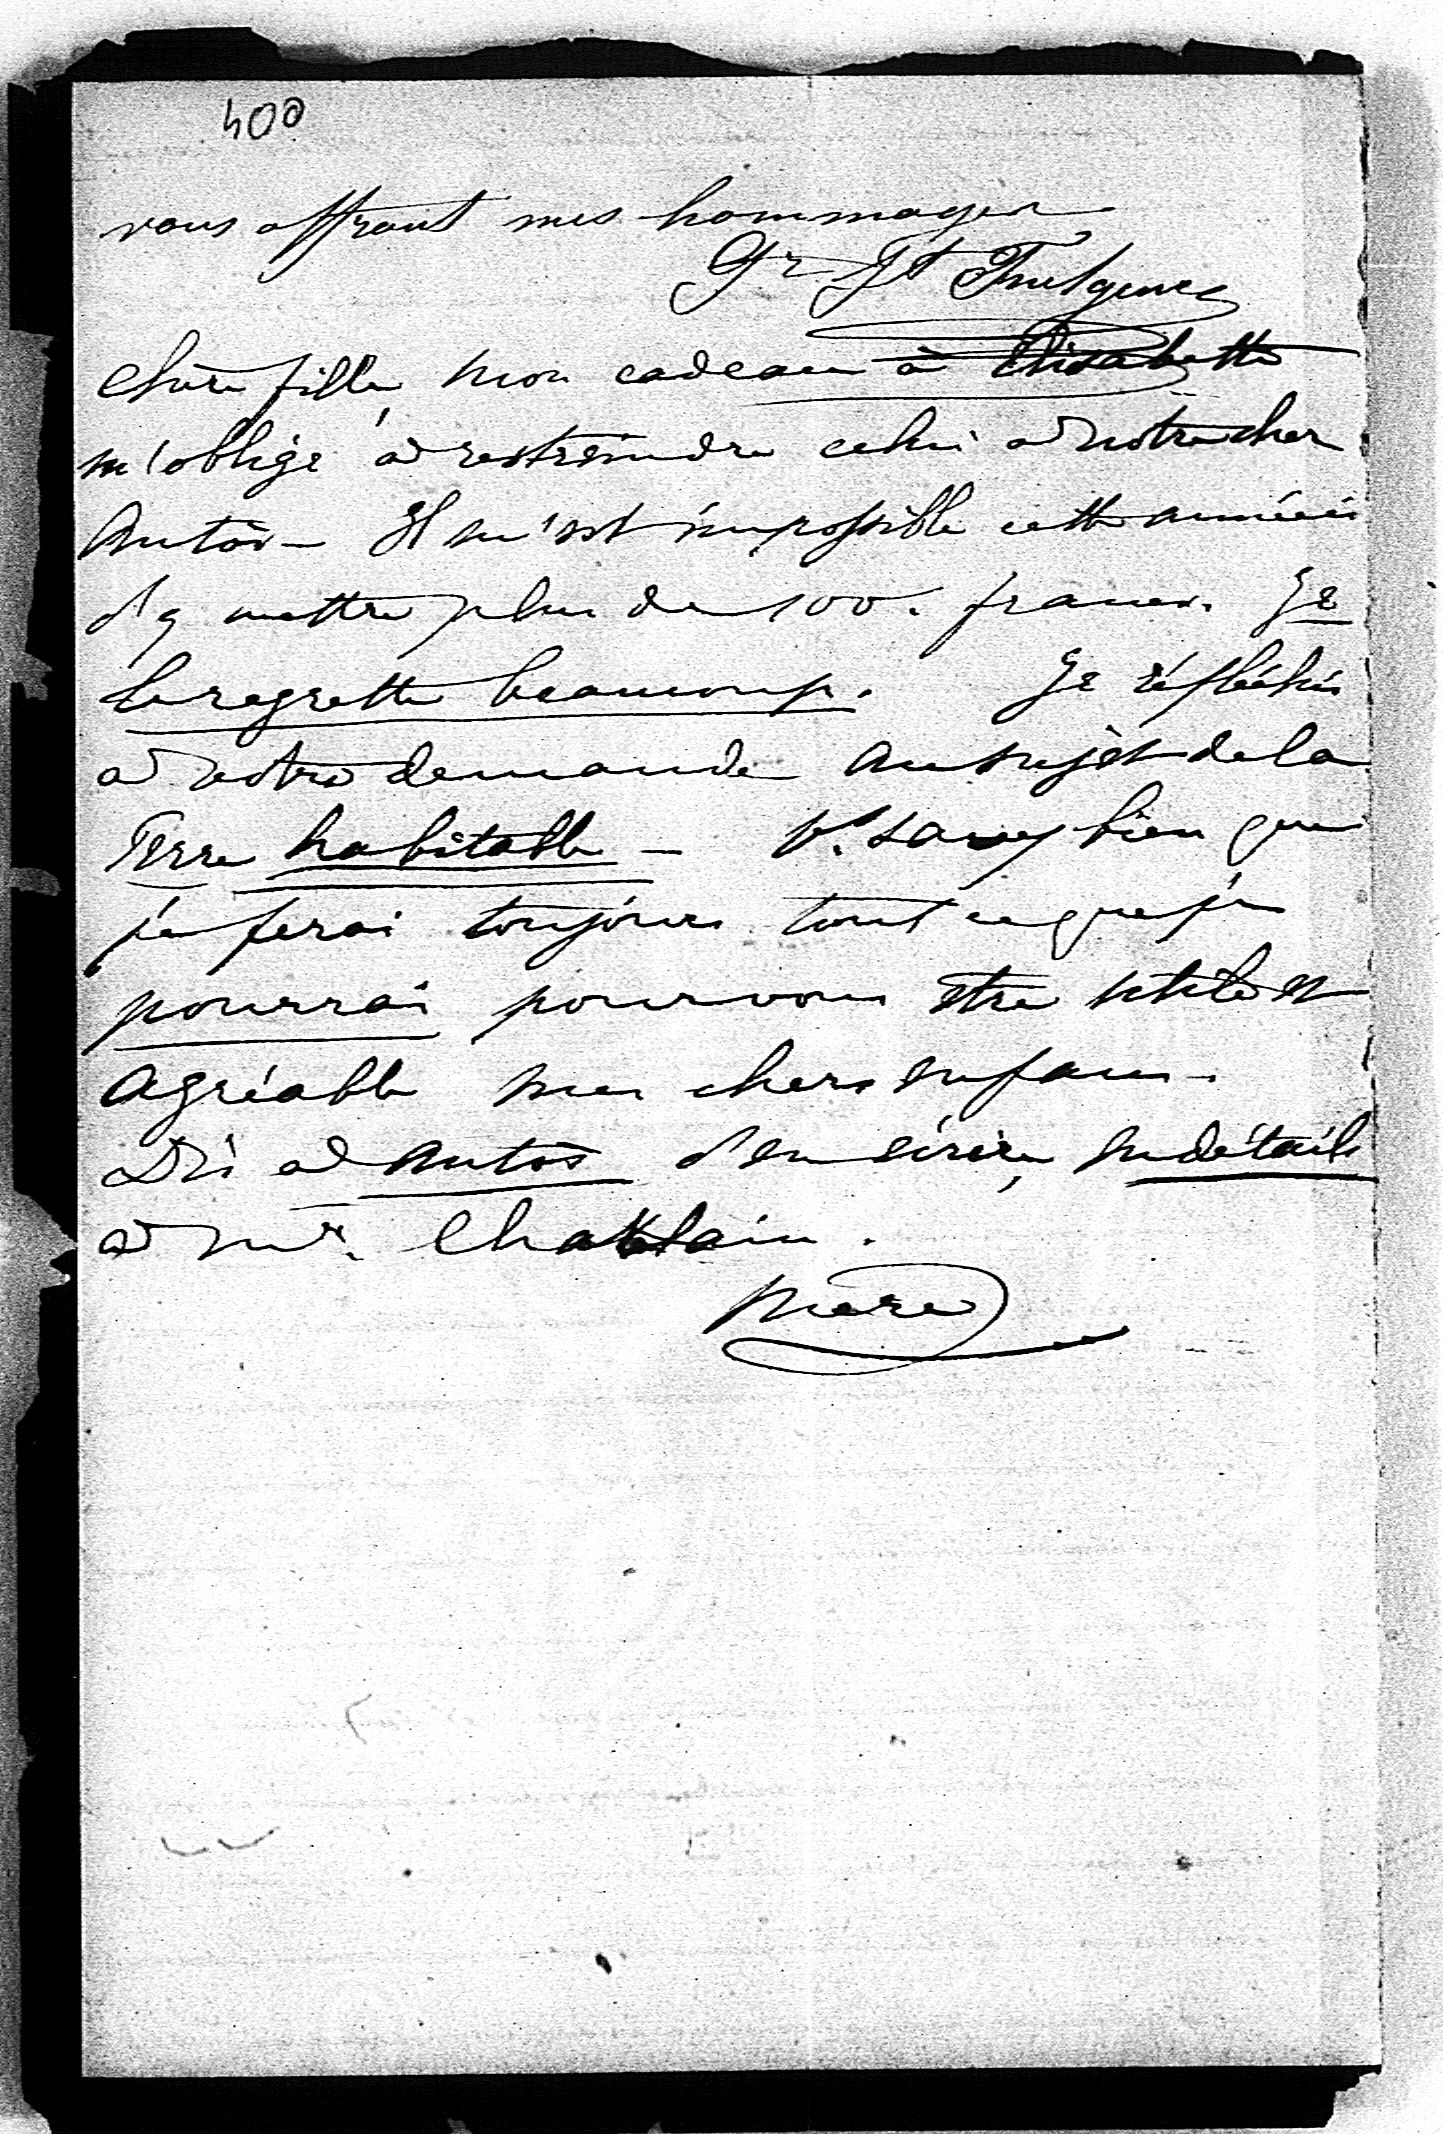 400
vous offrant mes hommages
Gr St Fulgence
Chère fille, mon cadeau à Elisabeth
m'oblige à restreindre celui à notre cher
Antos - Il m'est impossible cette année
d'y mettre plus de 100. francs. Je
le regrette beaucoup. Je réfléchis
à votre demande au sujet de la
Terre habitable - V. savez bien que
je ferai toujours tout ce que je
pourrai pour vous être utile et
agréable mes chers enfans -
Dis à Antos d'en écrire, en détails
à Mr.
Mère